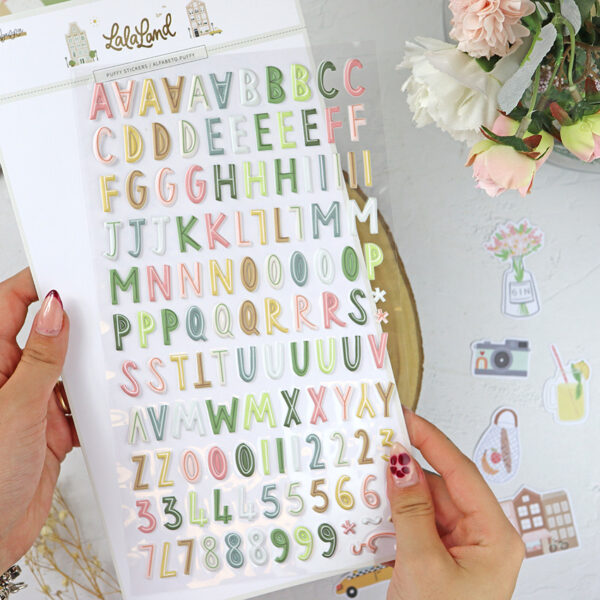 LaLaLand
PUFFY STICKERS / ALFABETO PUFFY
A A A A A A B B B C C
C D D D E E E E E F F
F G G G H H H I I I I
J J J K K L L L L M M
M N N N N O O O O O P
P P P Q Q Q R R R R S
S S T T T U U U U U V
V V V W W W X X Y Y Y
Z Z Z 0 0 0 1 1 2 2 2 3
3 3 3 4 4 4 5 5 5 6 6 6
7 7 7 8 8 8 9 9 9
GIN